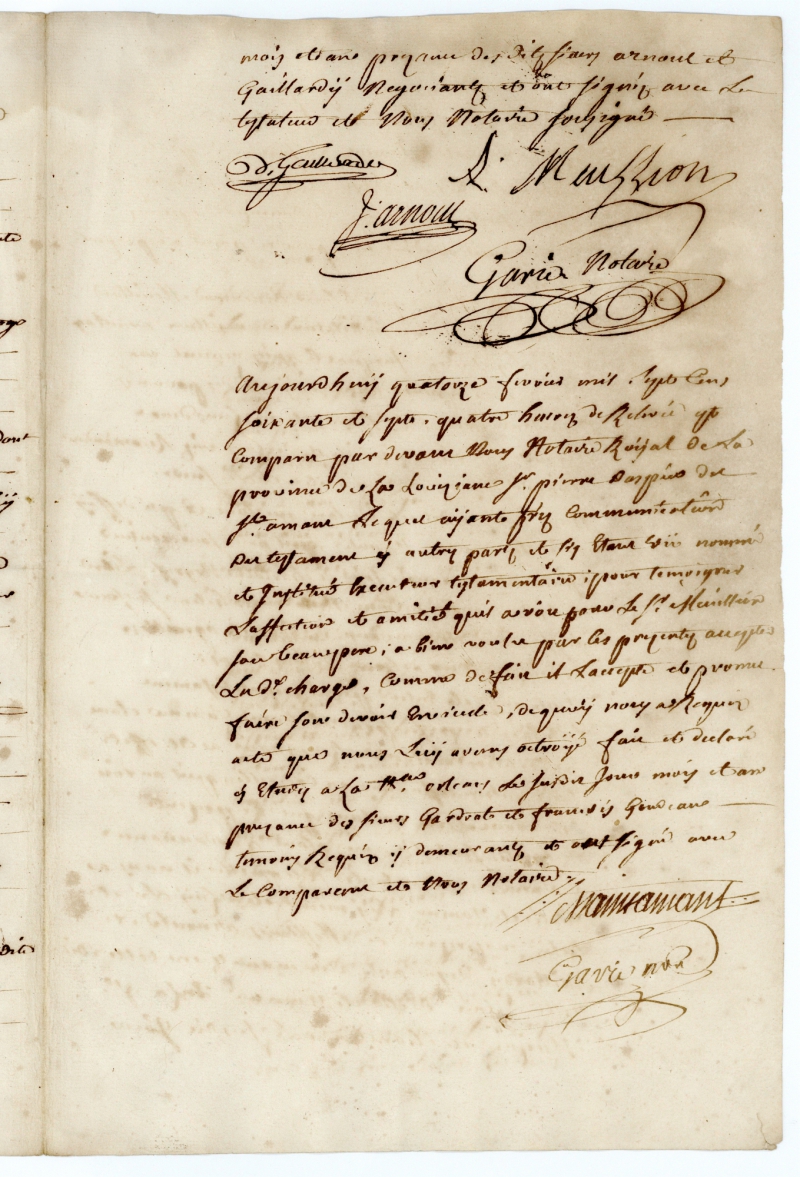 mois et an en presence des dits sieurs arnoul et
Gaillardÿ Negociants et ont signéz avec Le
testateur et Nous Notaire soussigné
J. arnoul
Garic Notaire
Aujourdhuÿ quatorze fevrier mil sept Cens
soixante et sept, quatre heures de Relevée est
Comparu par devant Nous Notaire Roÿal de La
province de La Louisiane Sr. pierre
St. amant Lequel aÿant pris Communication
Du testament ÿ autres parts et sÿ Etant vû nommé
et Institué Executeur testamentaire, pour temoigner
L'affection et amitié quil a pour Le Sr.
son beaupere, a bien voulu par les presentes accepter
La de. charge, Comme de fait il L'accepte et promet
faire son devoir, de quoÿ nous a Requis
acte que nous Luÿ avons octroÿé fait et declaré
Etude a La Nlle. orleans Le Susdit Jour mois et an
presence des sieurs Gardrat et francois
temoins Requis ÿ demeurants et ont signé avec
Le Comparant et Nous Notaire
Garic nore